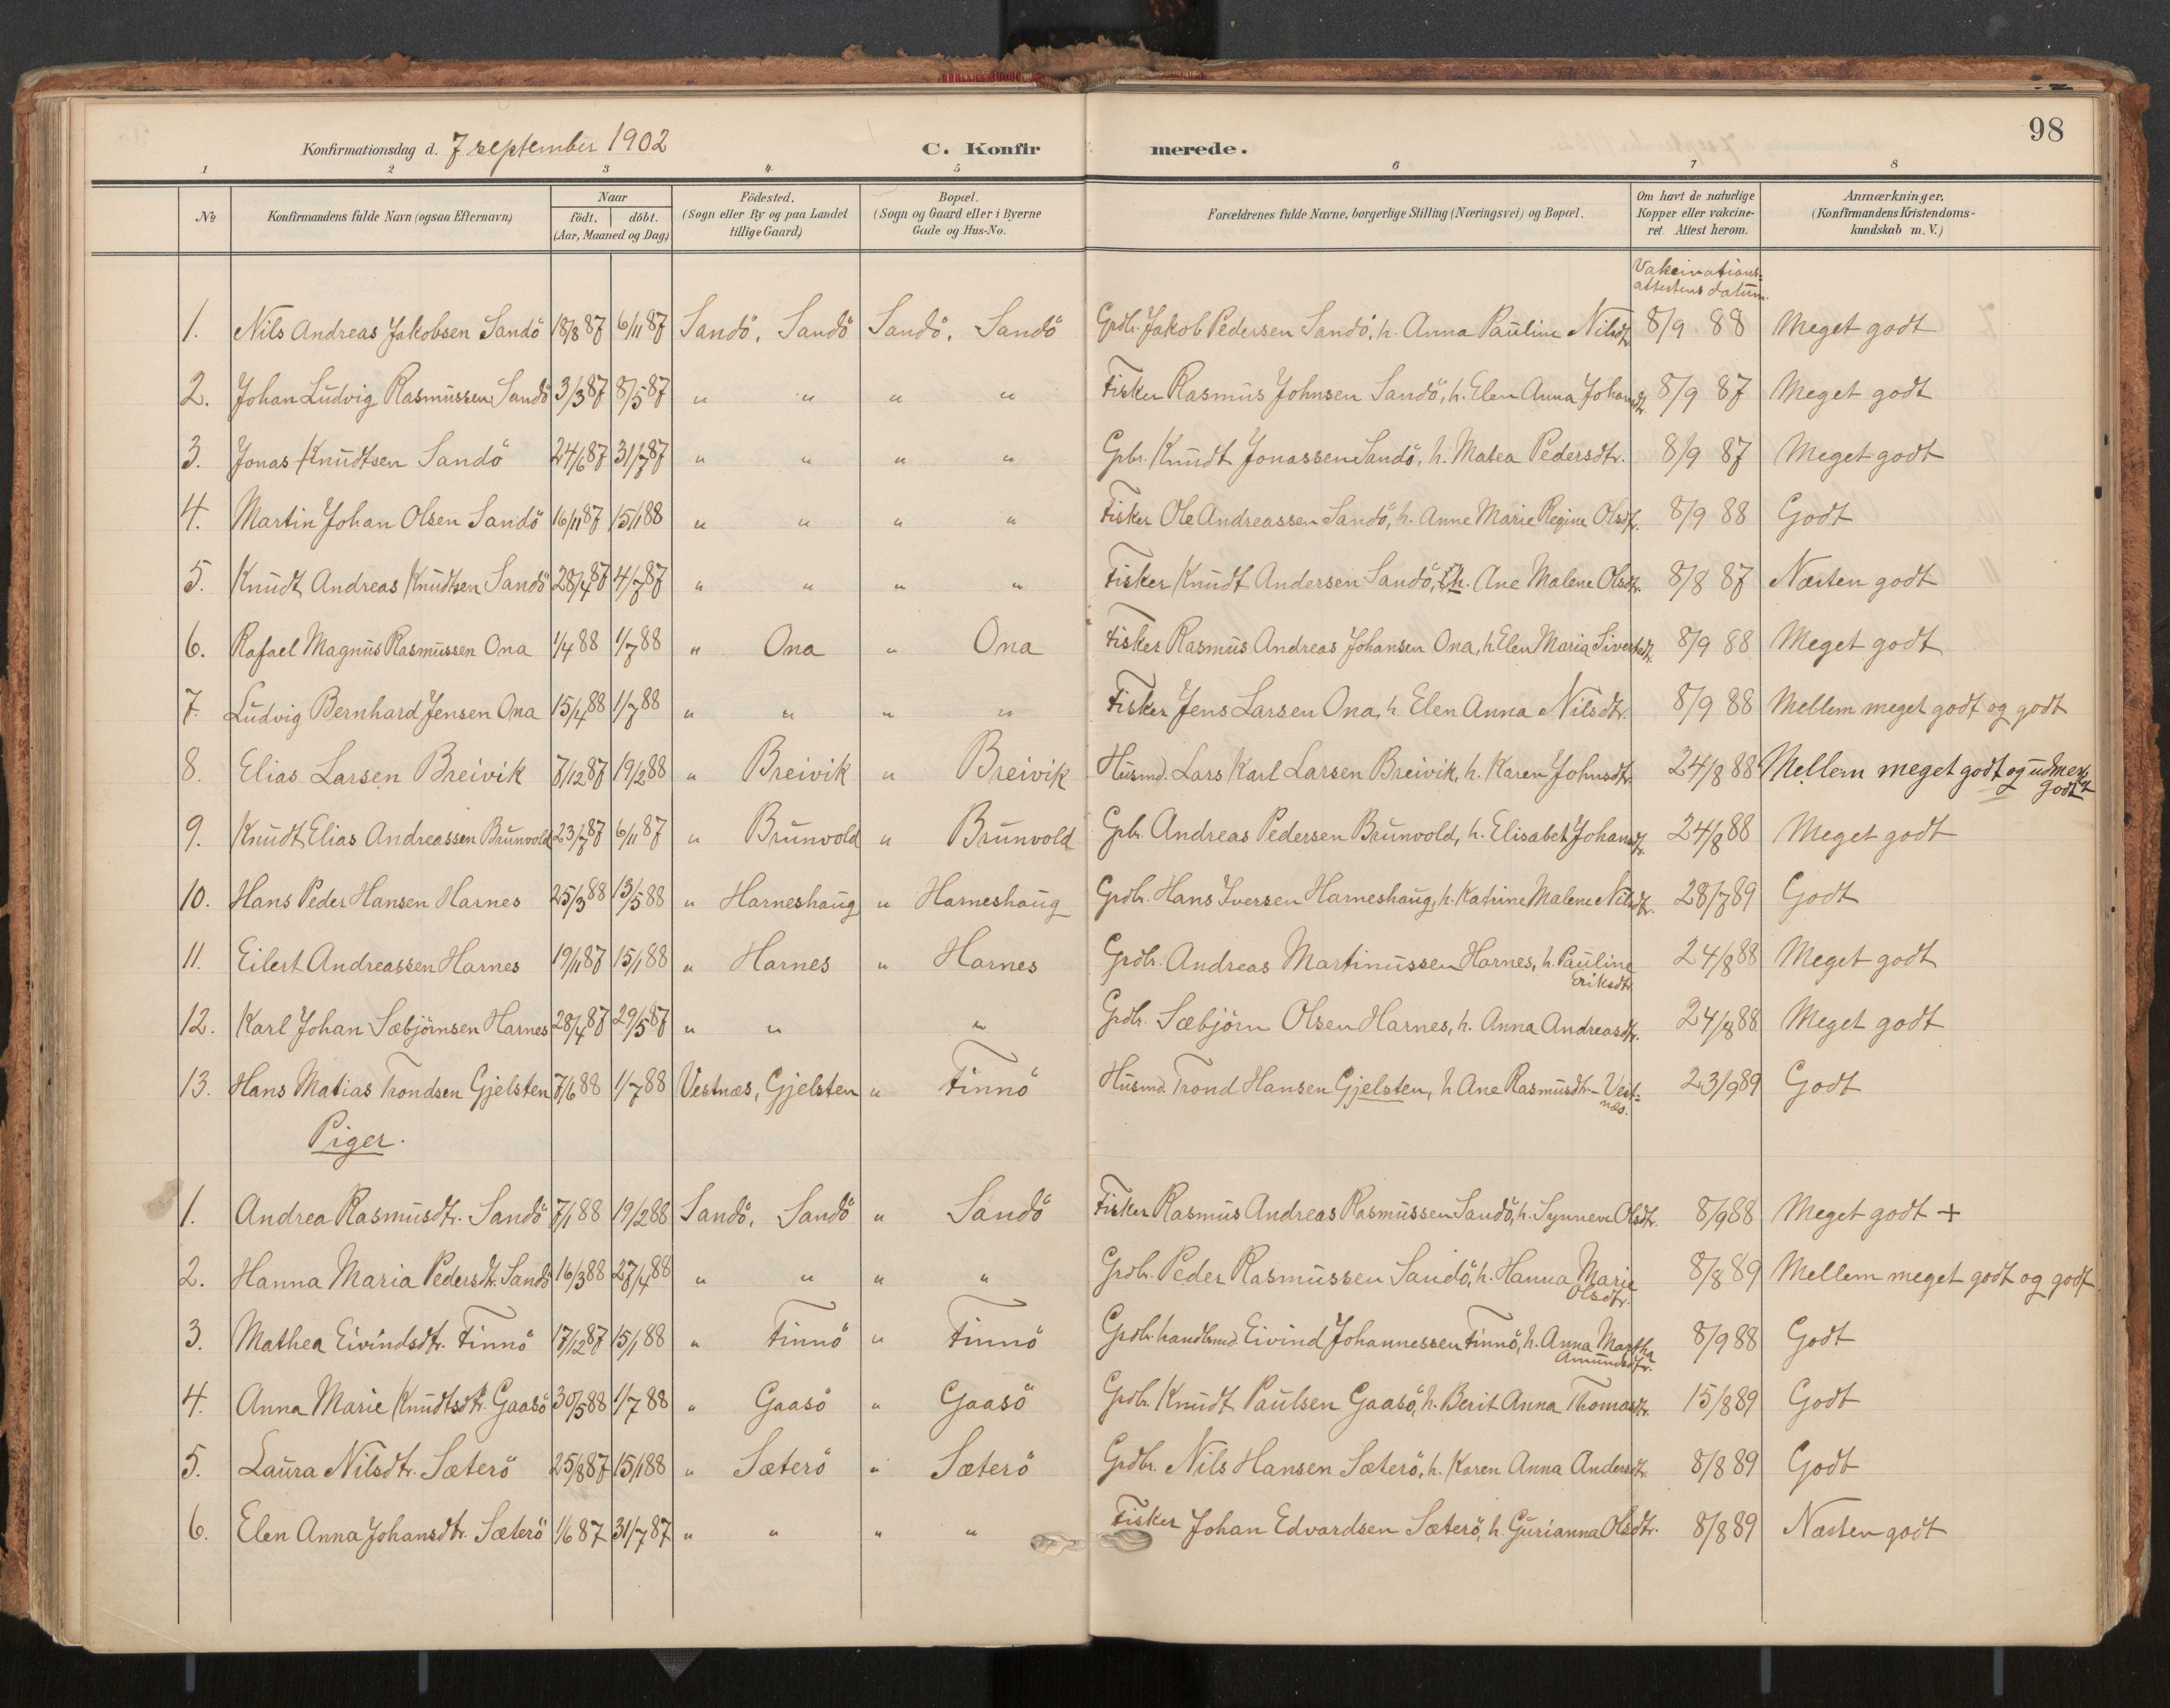 98
Konfirmationsdag d. 7 september 1902 C. Konfirmerede.
1 2 3 4. 5 6 7 8
№ Konfirmandens fulde Navn (ogsaa Efternavn) Naar födt. döbt. (Aar, Maaned og Dag) Födested. (Sogn eller By og paa Landet tillige Gaard) Bopæl. (Sogn og Gaard eller i Byerne Gade og Hus-No. Forældrenes fulde Navne, borgerlige Stilling (Næringsvei) og Bopæl. Om havt de naturlige Kopper eller vakcineret. Attest herom. Anmærkninger. (Konfirmandens Kristendomskundskab m. V.)
Vakcinations=attestens datum.
1. Nils Andreas Jakobsen Sandö 18/8 87 6/11 87 Sandö, Sandö Sandö, Sandö Grdbr. Jakob Pedersen Sandö, h. Anna Pauline Nilsdtr. 8/9 88 Meget godt
2. Johan Ludvig Rasmussen Sandö 3/3 87 8/5 87 " " " " Fisker Rasmus Johnsen Sandö, h. Elen Anna Johansdtr. 8/9 87 Meget godt
3. Jonas Knudtsen Sandö 24/6 87 31/7 87 " " " " Gbr. Knudt Jonassen Sandö, h. Matea Pedersdtr. 8/9 87 Meget godt
4. Martin Johan Olsen Sandö 16/11 87 15/1 88 " " " " Fisker Ole Andreassen Sandö, h. Anne Marie Regine Olsdtr. 8/9 88 Godt
5. Knudt Andreas Knudtsen Sandö 28/4 87 4/7 87 " " " " Fisker Knudt Andersen Sandö, h. Ane Malene Olsdtr. 8/8 87 Næsten godt
6. Rafael Magnus Rasmussen Ona 1/4 88 1/7 88 " Ona " Ona Fisker Rasmus Andreas Johansen Ona, h. Elen Maria Sivertsdtr. 8/9 88 Meget godt
7. Ludvig Bernhard Jensen Ona 15/4 88 1/7 88 " " " " Fisker Jens Larsen Ona, h Elen Anna Nilsdtr. 8/9 88 Mellem meget godt og godt
8. Elias Larsen Breivik 7/12 87 19/2 88 " Breivik " Breivik Husmd. Lars Karl Larsen Breivik, h. Karen Johnsdtr. 24/8 88 Mellem meget godt og udmerket godt
9. Knudt Elias Andreassen Brunvold 23/7 87 6/11 87 " Brunvold " Brunvold Gbr. Andreas Pedersen Brunvold, h. Elisabet Johansdtr. 24/8 88 Meget godt
10. Hans Peder Hansen Harnes 25/3 88 13/5 88 " Harneshaug " Harneshaug Grdbr. Hans Iversen Harneshaug, h. Katrine Malene Nilsdtr. 28/7 89 Godt
11. Eilert Andreassen Harnes 19/11 87 15/1 88 " Harnes " Harnes Grdbr. Andreas Martinussen Harnes, h. Pauline Eriksdtr. 24/8 88 Meget godt
12. Karl Johan Sæbjörnsen Harnes 28/4 87 29/5 87 " " " Grdbr. Sæbjörn Olsen Harnes, h. Anna Andreasdtr. 24/8 88 Meget godt
13. Hans Matias Trondsen Gjelsten 7/6 88 1/7 88 Vestnæs, Gjelsten " Finnö Husmd. Trond Hansen Gjelsten, h. Ane Rasmusdtr. – Vest=næs. 23/9 89 Godt
Piger.
1. Andrea Rasmusdtr. Sandö 7/1 88 19/2 88 Sandö, Sandö " Sandö Fisker Rasmus Andreas Rasmussen Sandö, h. Synneve Olsdtr. 8/9 88 Meget godt +
2. Hanna Maria Pedersdtr. Sandö 16/3 88 27/4 88 " " " " Grdbr. Peder Rasmussen Sandö, h. Hanna Marie Olsdtr. 8/8 89 Mellem meget godt og godt
3. Mathea Eivindsdtr. Finnö 17/12 87 15/1 88 " Finnö " Finnö Grdbr. handlsmd. Eivind Johannessen Finnö, h. Anna Martha Amundsdtr. 8/9 88 Godt
4. Anna Marie Knudtsdtr. Gaasö 30/5 88 1/7 88 " Gaasö " Gaasö Grdbr. Knudt Paulsen Gaasö, h. Berit Anna Thomasdtr. 15/8 89 Godt
5. Laura Nilsdtr. Sæterö 25/8 87 15/1 88 " Sæterö " Sæterö Grdbr. Nils Hansen Sæterö, h. Karen Anna Andersdtr. 8/8 89 Godt
6. Elen Anna Johansdtr. Sæterö 1/6 87 31/7 87 " " " " Fisker Johan Edvardsen Sæterö, h. Gurianna Olsdtr. 8/8 89 Næsten godt